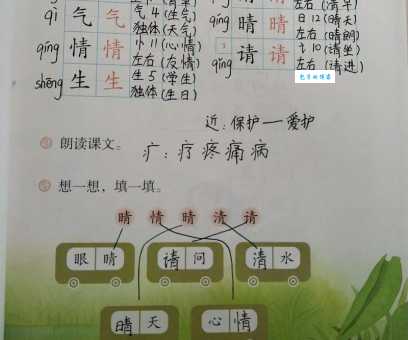 左右(清早)
qì 气 气 气 4 (生气)
独体(天气)
qíng 晴 晴 日 12 (晴天)
左右(晴朗)
qíng 情 情 忄 11 (心情)
左右(友情)
qǐng 请 请 讠 10 (请坐)
左右(请进)
shēng 生 生 生 5 (学生)
独体(生日)
近:保护—爱护
朗读课文。
疒:疗疼痛病
想一想,填一填。
睛 情 晴 清 请
眼 睛 请 问 清 水
晴 天 心 情